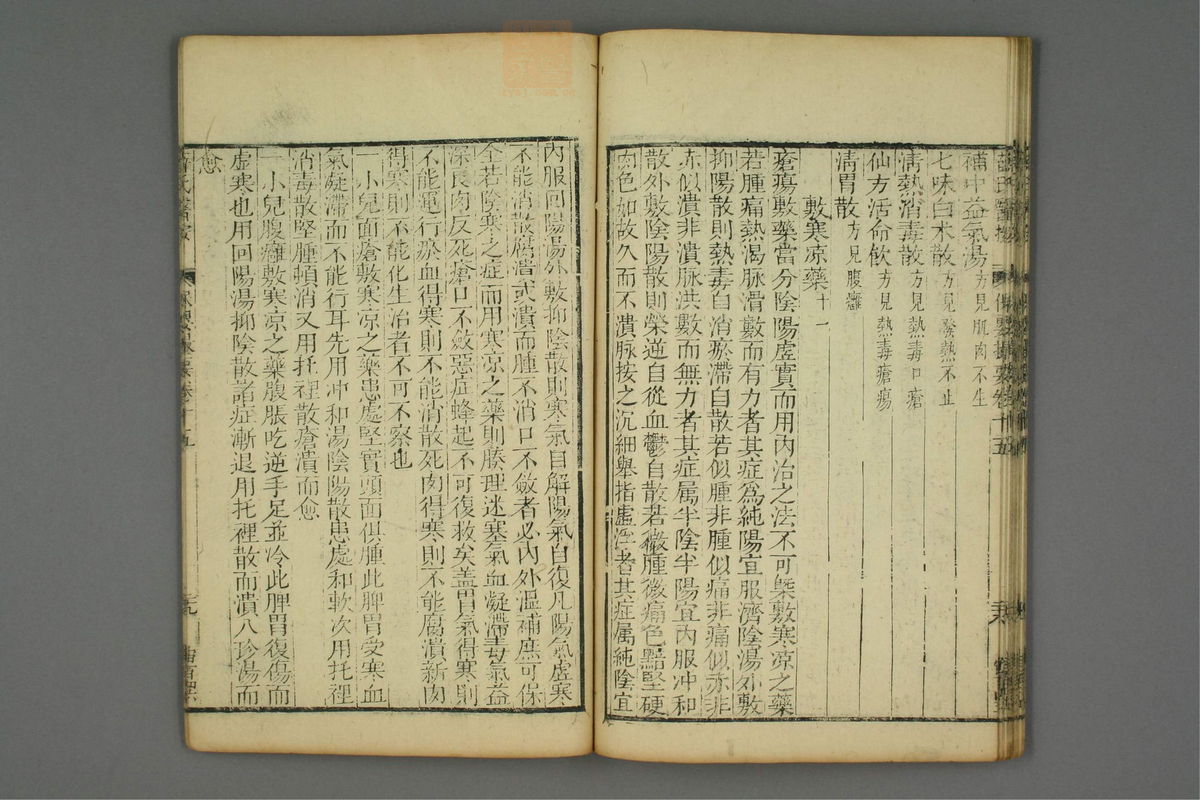 補中益氣湯方見肌肉不生
七味白朮散方見發熱不止
清熱消毒散方見熱毒口瘡
仙方活命飲方見熱毒瘡瘍
清胃散方見腹癰
敷寒涼藥十一
瘡瘍敷藥當分陰陽虛實而用內治之法不可槩敷寒涼之藥
若腫痛熱渴脉滑數而有力者其症爲純陽宜服濟陰湯外敷
抑陽散則熱毒自消瘀滯自散若似腫非腫似痛非痛似赤非
赤似潰非潰脉洪數而無力者其症属半陰半陽宜內服冲和
散外敷陰陽散則榮逆自從血鬱自散若微腫微痛色黯堅硬
肉色如故久而不潰脉按之沉細舉指虛浮者其症属純陰宜
內服回陽湯外敷抑陰散則寒氣自解陽氣自復凡陽氣虛寒
不能消散腐潰或潰而腫不消口不斂者必內外溫補庶可保
全若陰寒之症而用寒涼之藥則腠理迷塞氣血凝滯毒氣益
深良肉反死瘡口不斂惡症蜂起不可復救矣蓋胃氣得寒則
不能運行瘀血得寒則不能消散死肉得寒則不能腐潰新肉
得寒則不能化生治者不可不察也
一小兒面瘡敷寒涼之藥患處堅實頭面俱腫此脾胃受寒血
氣凝滯而不能行耳先用冲和湯陰陽散患處和軟次用托裡
消毒散堅腫頓消又用托裡散瘡潰而愈
一小兒腹癰敷寒涼之藥腹脹吃逆手足並冷此脾胃復傷而
虛寒也用回陽湯抑陰散諸症漸退用托裡散而潰八珍湯而
愈